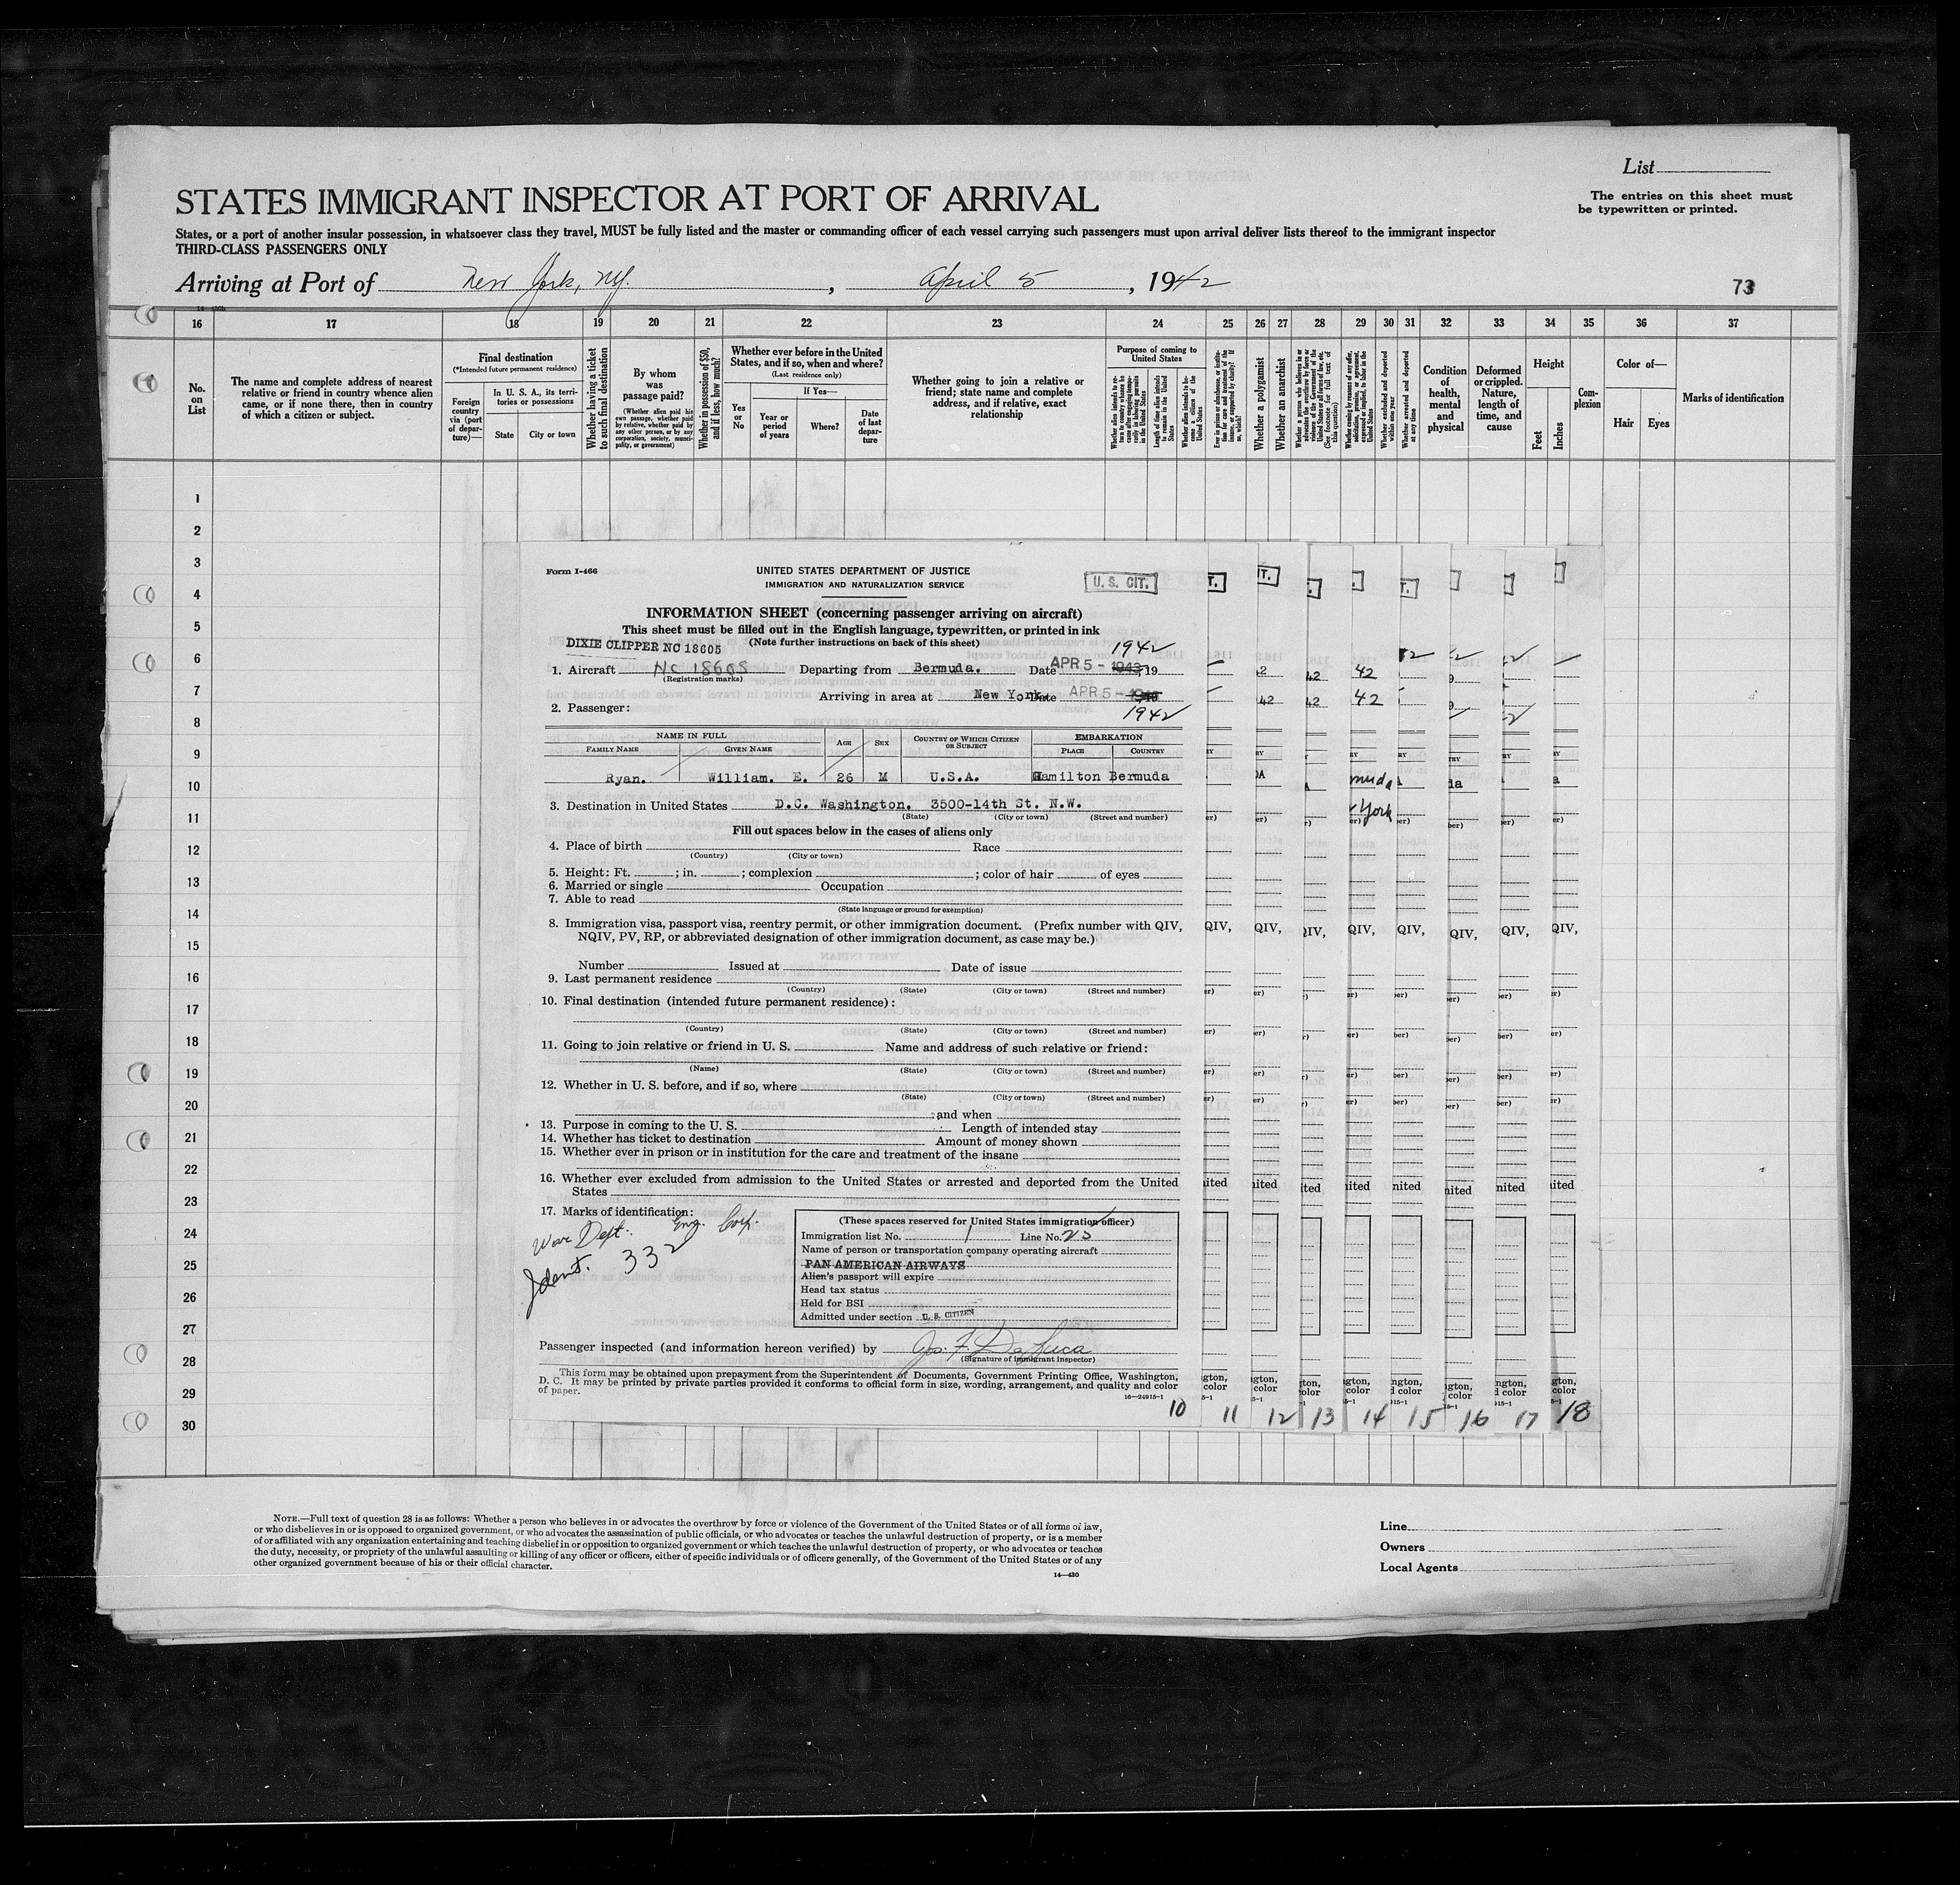 List
The entries on this sheet must
be typewritten or printed.
STATES IMMIGRANT INSPECTOR AT PORT OF ARRIVAL
States, or a port of another insular possession, in whatsoever class they travel, MUST be fully listed and the master or commanding officer of each vessel carrying such passengers must upon arrival deliver lists thereof to the immigrant inspector
THIRD-CLASS PASSENGERS ONLY
Arriving at Port of New York, NY. , April 5 , 1942
73
16 17 18 19 20 21 22 23 24 25 26 27 28 29 30 31 32 33 34 35 36 37
No. on List
The name and complete address of nearest
relative or friend in country whence alien
came, or if none there, then in country
of which a citizen or subject.
Final destination
(*Intended future permanent residence)
Foreign country via (port of departure)—
In U. S. A., its territories or possessions
State
City or town
Whether having a ticket to such final destination
By whom was passage paid?
(Whether alien paid his own passage, whether paid by relative, whether paid by any other person, or by any corporation, society, municipality, or government)
Whether in possession of $50, and if less, how much?
Whether ever before in the United
States, and if so, when and where?
(Last residence only)
Yes or No
If Yes—
Year or period of years
Where?
Date of last departure
Whether going to join a relative or
friend; state name and complete
address, and if relative, exact
relationship
Purpose of coming to
United States
Length of time alien intends to remain in the United States
Whether a polygamist
Whether an anarchist
Whether excluded and deported within one year
Whether arrested and deported at any time
Condition of health, mental and physical
Deformed or crippled. Nature, length of time, and cause
Height
Feet
Inches
Complexion
Color of—
Hair
Eyes
Marks of identification
1
2
3
4
5
6
7
8
9
10
11
12
13
14
15
16
17
18
19
20
21
22
23
24
25
26
27
28
29
30
Form I-466
UNITED STATES DEPARTMENT OF JUSTICE
IMMIGRATION AND NATURALIZATION SERVICE
U. S. CIT.
INFORMATION SHEET (concerning passenger arriving on aircraft)
This sheet must be filled out in the English language, typewritten, or printed in ink
(Note further instructions on back of this sheet)
DIXIE CLIPPER NC 18605
1942
1. Aircraft NC 18605 Departing from Bermuda. Date APR 5 - 1943, 19
(Registration marks)
Arriving in area at New York. Date APR 5 -
1942
2. Passenger:
NAME IN FULL
FAMILY NAME
GIVEN NAME
AGE
SEX
COUNTRY OF WHICH CITIZEN
OR SUBJECT
EMBARKATION
PLACE
COUNTRY
Ryan. William. E. 26 M U.S.A. Hamilton Bermuda
3. Destination in United States D.C. Washington. 3500-14th St. N.W.
(State) (City or town) (Street and number)
Fill out spaces below in the cases of aliens only
4. Place of birth Race
(Country) (City or town)
5. Height: Ft. ; in. ; complexion ; color of hair of eyes
6. Married or single Occupation
7. Able to read
(State language or ground for exemption)
8. Immigration visa, passport visa, reentry permit, or other immigration document. (Prefix number with QIV,
NQIV, PV, RP, or abbreviated designation of other immigration document, as case may be.)
Number Issued at Date of issue
9. Last permanent residence
(Country) (State) (City or town) (Street and number)
10. Final destination (intended future permanent residence):
(Country) (State) (City or town) (Street and number)
11. Going to join relative or friend in U. S. Name and address of such relative or friend:
(Name) (State) (City or town) (Street and number)
12. Whether in U. S. before, and if so, where
(State) (City or town) (Street and number)
and when
13. Purpose in coming to the U. S. Length of intended stay
14. Whether has ticket to destination Amount of money shown
15. Whether ever in prison or in institution for the care and treatment of the insane
16. Whether ever excluded from admission to the United States or arrested and deported from the United
States
17. Marks of identification:
War Dept. Eng. Corp.
Ident. 332
(These spaces reserved for United States immigration officer)
Immigration list No. 1 Line No. 23
Name of person or transportation company operating aircraft
PAN AMERICAN AIRWAYS
Alien's passport will expire
Head tax status
Held for BSI
Admitted under section U. S. CITIZEN
Passenger inspected (and information hereon verified) by Jos. F. DaLuca
(Signature of immigrant inspector)
This form may be obtained upon prepayment from the Superintendent of Documents, Government Printing Office, Washington,
D. C. It may be printed by private parties provided it conforms to official form in size, wording, arrangement, and quality and color
of paper.
16—24915-1
10 11 12 13 14 15 16 17 18
NOTE.—Full text of question 28 is as follows: Whether a person who believes in or advocates the overthrow by force or violence of the Government of the United States or of all forms of law,
or who disbelieves in or is opposed to organized government, or who advocates the assassination of public officials, or who advocates or teaches the unlawful destruction of property, or is a member
of or affiliated with any organization entertaining and teaching disbelief in or opposition to organized government or which teaches the unlawful destruction of property, or who advocates or teaches
the duty, necessity, or propriety of the unlawful assaulting or killing of any officer or officers, either of specific individuals or of officers generally, of the Government of the United States or of any
other organized government because of his or their official character.
14—430
Line
Owners
Local Agents